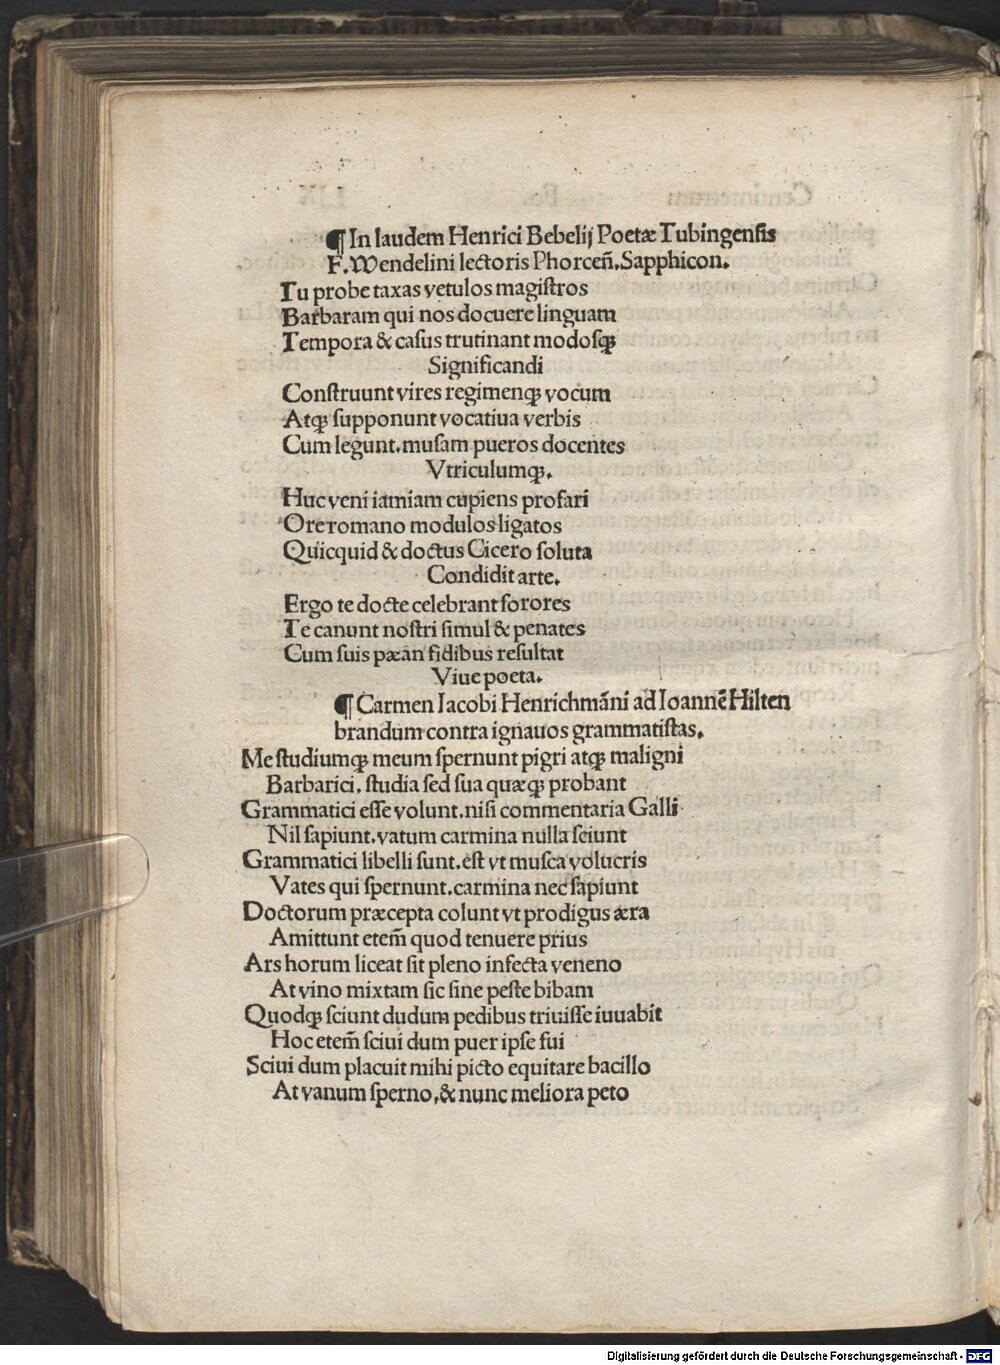 ¶ In laudem Henrici Bebelij Poetæ Tubingensis
F. Wendelini lectoris Phorceñ. Sapphicon.
Tu probe taxas vetulos magistros
Barbaram qui nos docuere linguam
Tempora & casus trutinant modosqꝫ
Significandi
Construunt vires regimenqꝫ vocum
Atqꝫ supponunt vocatiua verbis
Cum legunt. musam pueros docentes
Vtriculumqꝫ.
Huc veni iamiam cupiens profari
Ore romano modulos ligatos
Quicquid & doctus Cicero soluta
Condidit arte.
Ergo te docte celebrant sorores
Te canunt nostri simul & penates
Cum suis pæan fidibus resultat
Viue poeta.
¶ Carmen Iacobi Henrichmãni ad Ioannẽ Hilten
brandum contra ignauos grammatistas.
Me studiumqꝫ meum spernunt pigri atqꝫ maligni
Barbarici, studia sed sua quæqꝫ probant
Grammatici esse volunt. nisi commentaria Galli
Nil sapiunt. vatum carmina nulla sciunt
Grammatici libelli sunt. est vt musca volucris
Vates qui spernunt. carmina nec sapiunt
Doctorum præcepta colunt vt prodigus æra
Amittunt etem̃ quod tenuere prius
Ars horum liceat sit pleno infecta veneno
At vino mixtam sic sine peste bibam
Quodqꝫ sciunt dudum pedibus triuisse iuuabit
Hoc etem̃ sciui dum puer ipse fui
Sciui dum placuit mihi picto equitare bacillo
At vanum sperno, & nunc meliora peto
Digitalisierung gefördert durch die Deutsche Forschungsgemeinschaft - DFG